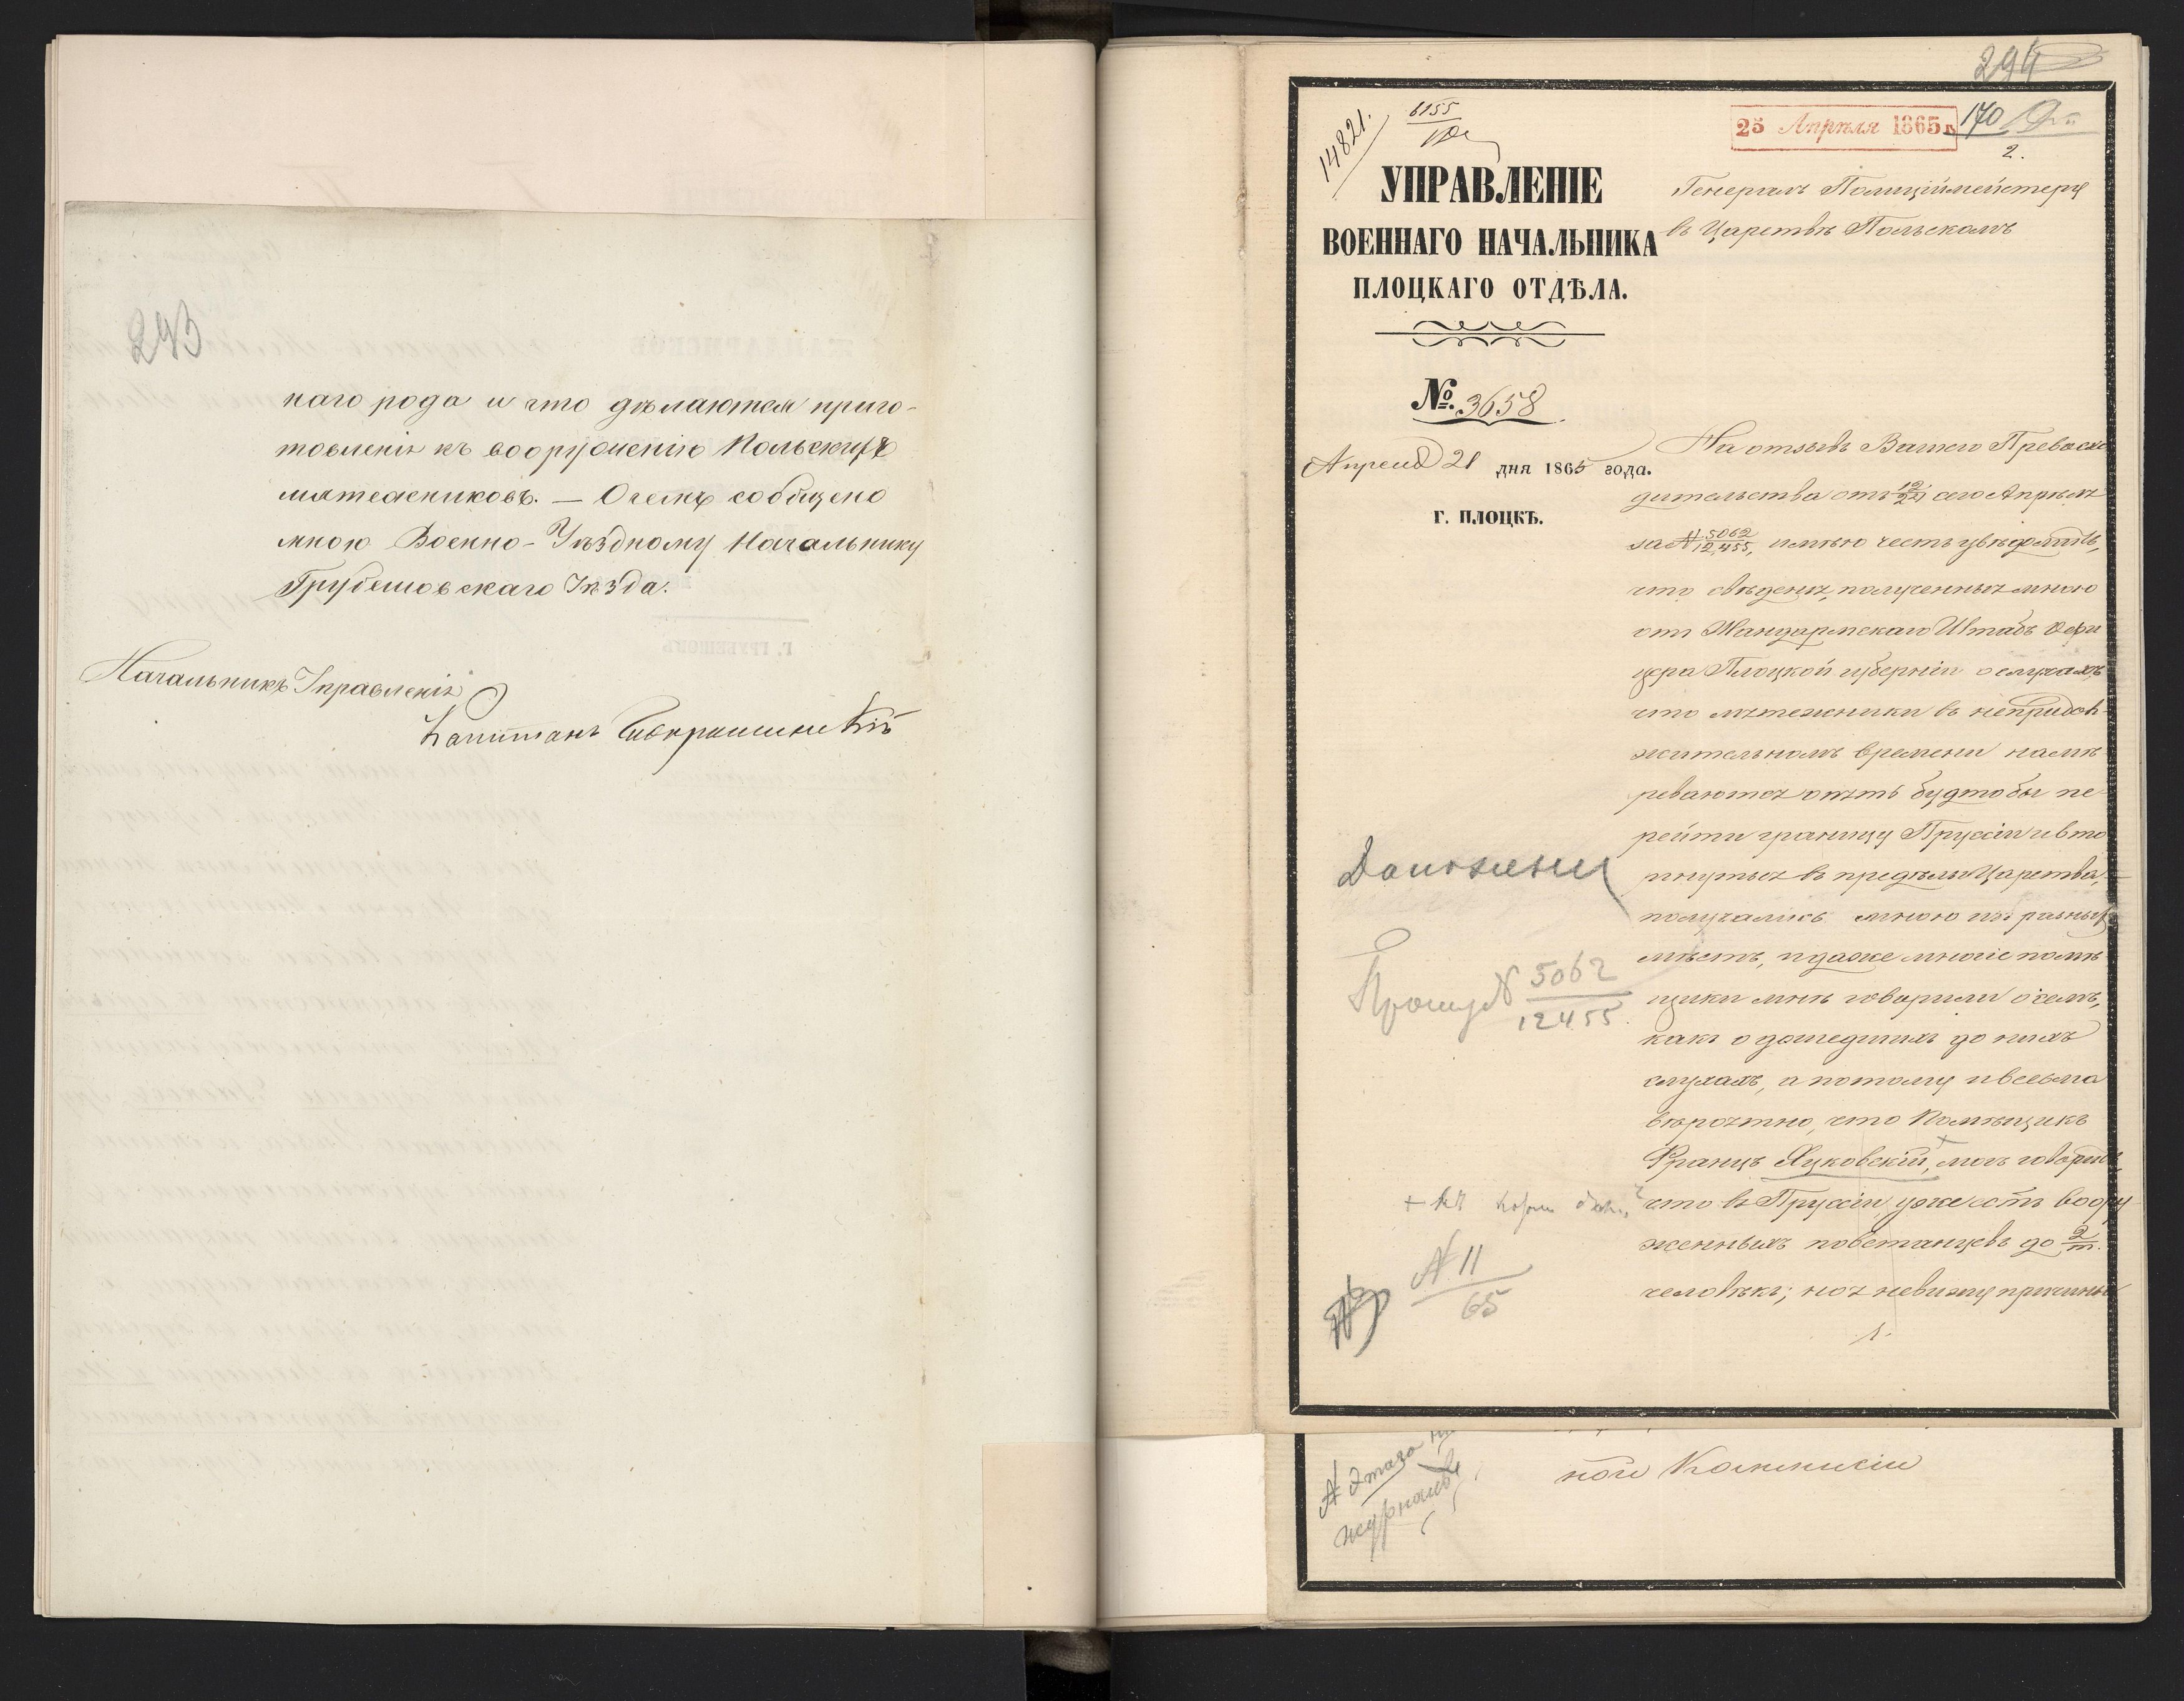 293
каго рода и что дѣлаются приго-
товленія къ вооруженію Польскихъ
мятежниковъ. — О чемъ сообщено
мною Военно-Уѣздному Начальнику
Грубешовскаго Уѣзда.
Начальникъ Управленія
Капитанъ
294
14821.
6155
25 Апрѣля 1865 г.
170
2.
УПРАВЛЕНІЕ
ВОЕННАГО НАЧАЛЬНИКА
ПЛОЦКАГО ОТДѢЛА.
№. 3658
Апреля 21 дня 1865 года.
г. ПЛОЦКЪ.
Генералъ Полиціймейстеру
въ Царствѣ Польскомъ
На отзывъ Вашего Превосхо
дительства отъ 12/24 сего Апрѣля
за № 5062/12,455, имѣю честь увѣдомить,
что свѣденія, полученныя мною
отъ Жандармскаго Штабъ Офи
цера Плоцкой губерніи о слухахъ,
что мятежники въ непродол-
жительномъ времени намѣ
реваются опять будто бы пе
рейти границу Пруссіи и вто
ргнуться въ предѣлы Царства,
получались мною изъ разныхъ
мѣстъ, и даже многіе помѣ
щики мнѣ говорили о семъ,
какъ о дошедшихъ до нихъ
слухахъ, а потому и весьма
вѣроятно, что Помѣщикъ
Францъ Жуковскій, могъ говорить,
что въ Пруссіи уже есть воору
женныхъ повстанцевъ до 2/т.
человѣкъ; но я не вижу причины
1.
Доложены
Прошу № 5062
12455
№ 11
65
№ этого
журналъ
ной Коммисіи